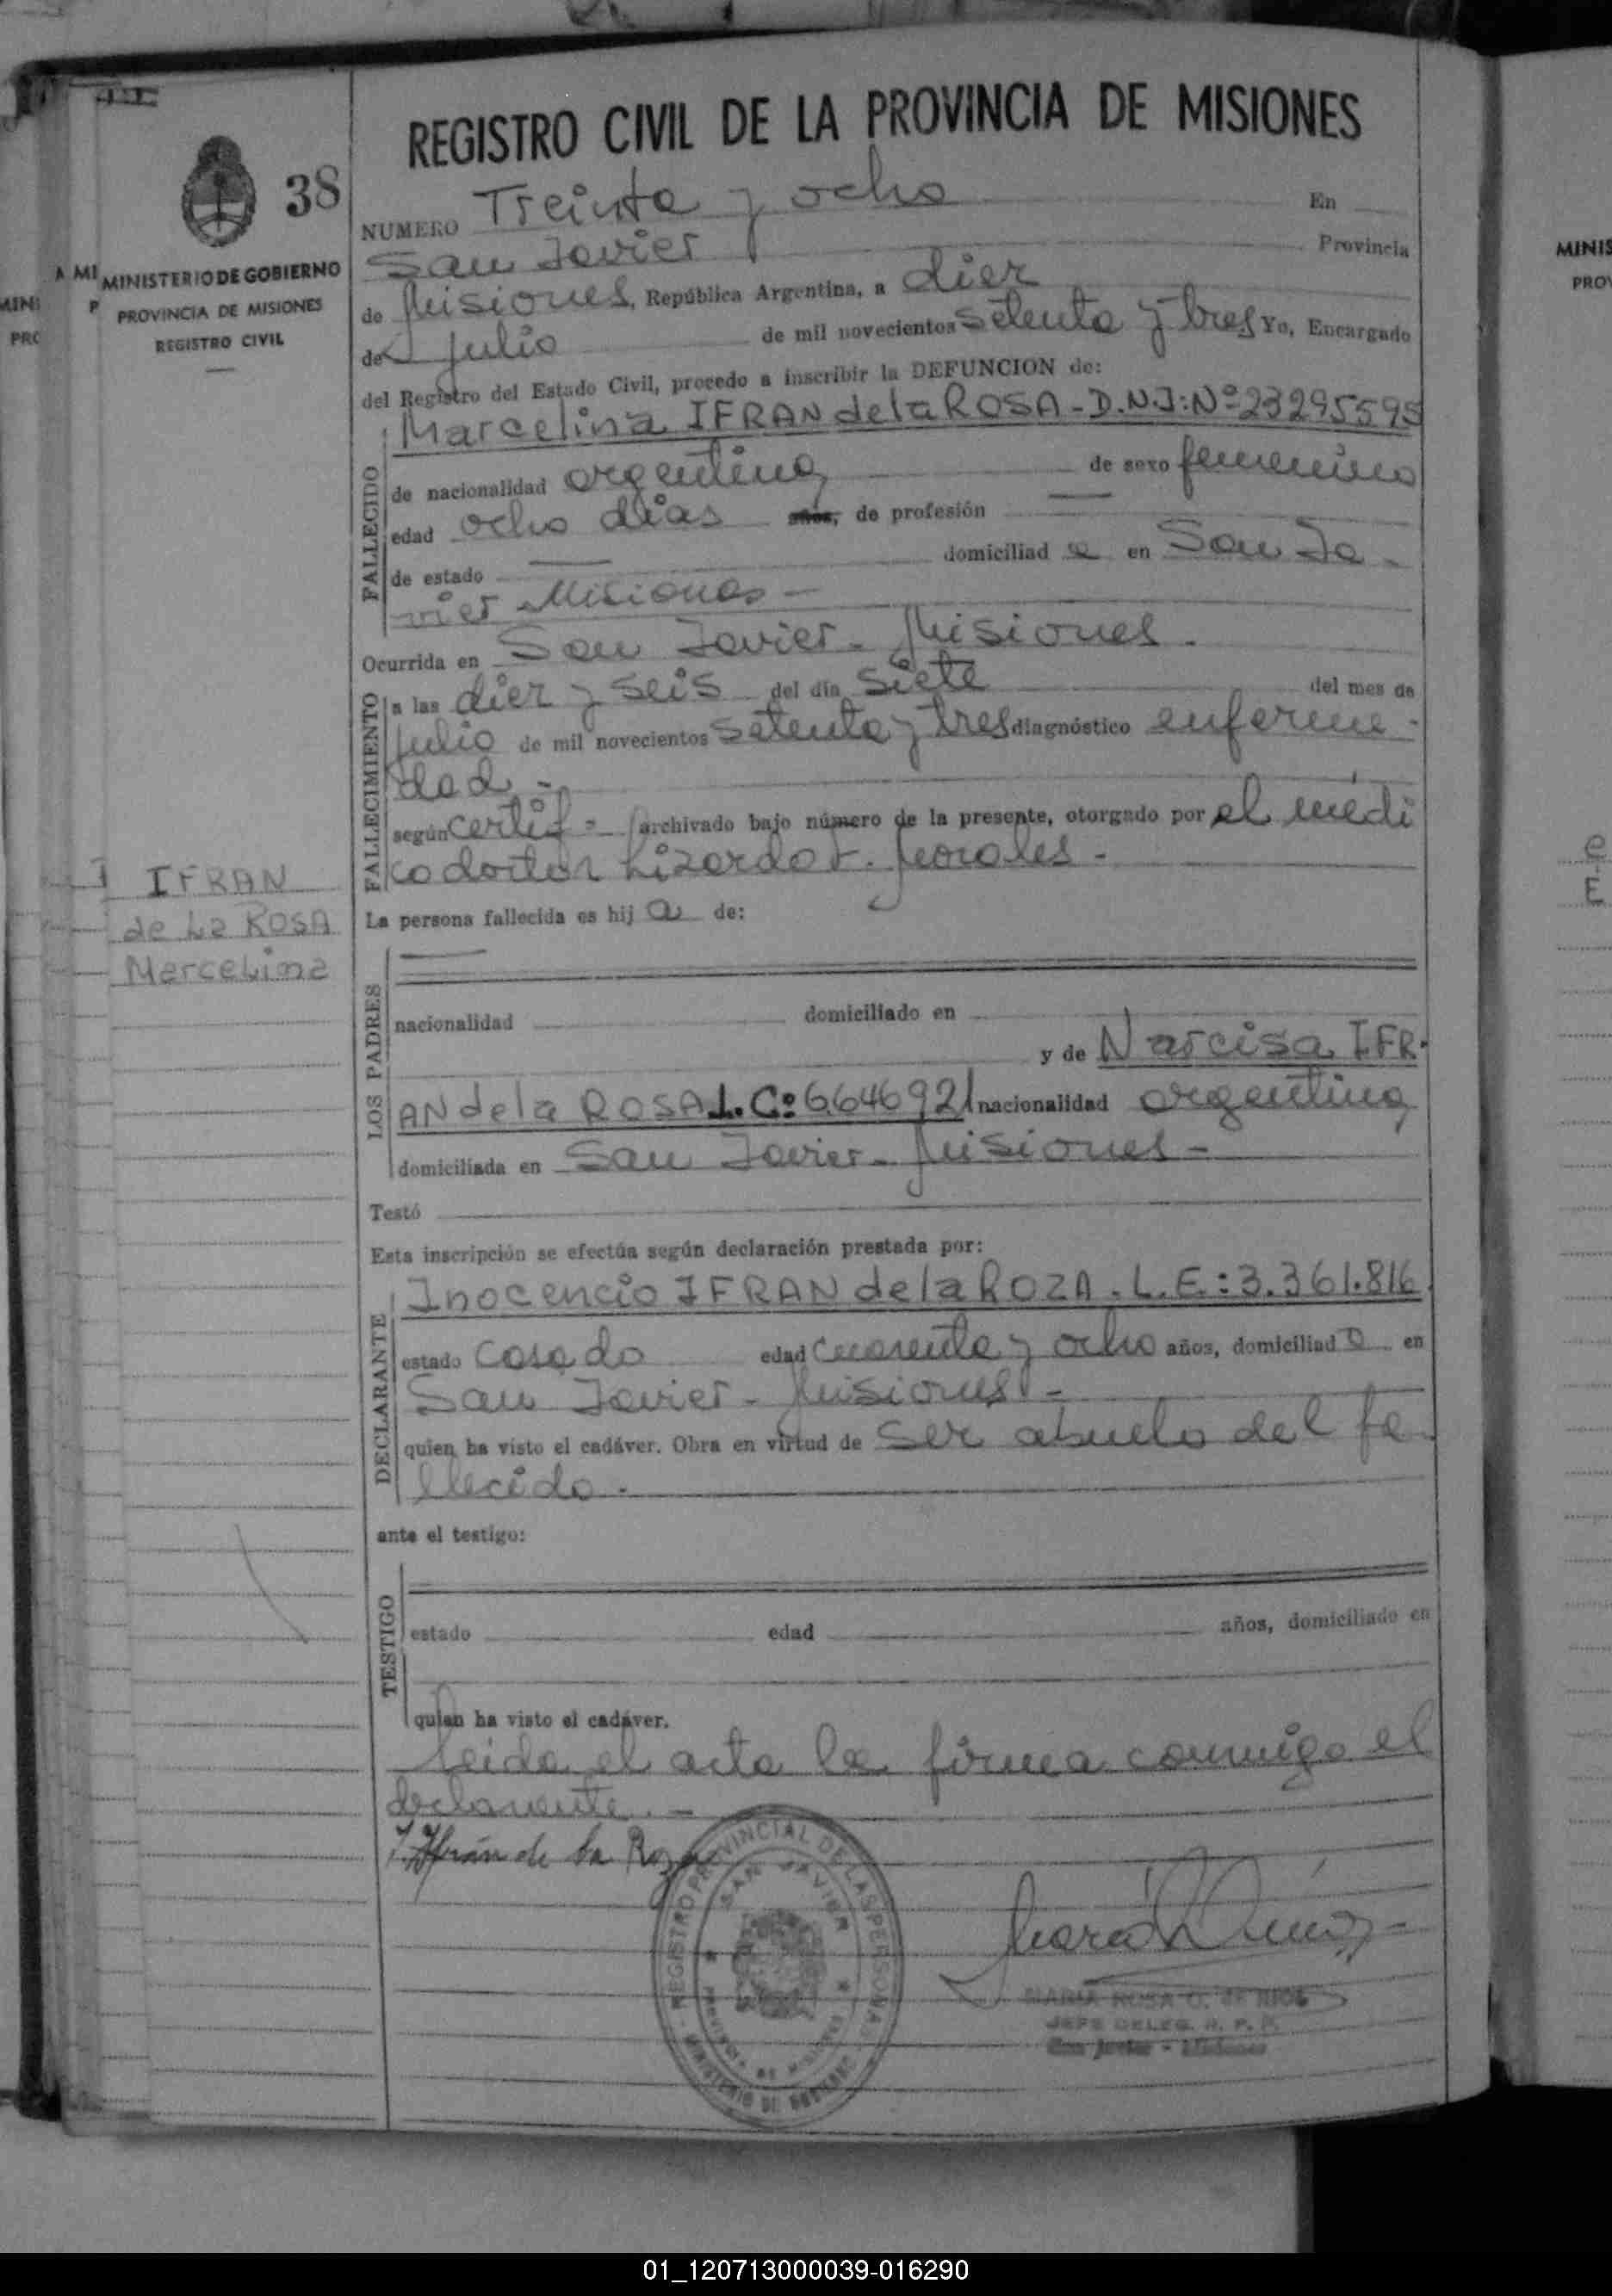 REGISTRO CIVIL DE LA PROVINCIA DE MISIONES
38
MINISTERIO DE GOBIERNO
PROVINCIA DE MISIONES
REGISTRO CIVIL
NUMERO Treinta y ocho En
San Javier Provincia
de Misiones, República Argentina, a diez
de Julio de mil novecientos setenta y tres Yo, Encargado
del Registro del Estado Civil, procedo a inscribir la DEFUNCION de:
FALLECIDO
Marcelina IFRAN de la ROSA - D.N.I: Nº 23295595
de nacionalidad argentina de sexo femenino
edad ocho días años, de profesión
de estado domiciliad a en San Ja-
vier Misiones -
Ocurrida en San Javier - Misiones -
FALLECIMIENTO
a las diez y seis del día siete del mes de
Julio de mil novecientos setenta y tres diagnóstico enferme-
dad -
según certif = archivado bajo número de la presente, otorgado por el médi
co doctor Lizardo F. Morales -
La persona fallecida es hij a de:
IFRAN
de La ROSA
Marcelina
LOS PADRES
nacionalidad domiciliado en
y de Narcisa IFR-
AN de la ROSA L.C: 6646921 nacionalidad argentina
domiciliada en San Javier - Misiones -
Testó
Esta inscripción se efectúa según declaración prestada por:
DECLARANTE
Inocencio IFRAN de la ROZA. L.E.: 3.361.816
estado casado edad cuarenta y ocho años, domiciliad o en
San Javier - Misiones -
quien ha visto el cadáver. Obra en virtud de ser abuelo del fa-
llecido -
ante el testigo:
TESTIGO
estado edad años, domiciliado en
quien ha visto el cadáver.
Leida el acta la firma conmigo el
declarante. -
I. Ifrán de la Roza
REGISTRO PROVINCIAL DE LAS PERSONAS
SAN JAVIER
PROVINCIA DE MISIONES
MINISTERIO DE GOBIERNO
MARIA ROSA O. de RIOS
JEFE DELEG. R. P. P.
San Javier - Misiones
MINIS
PROV
01_120713000039-016290